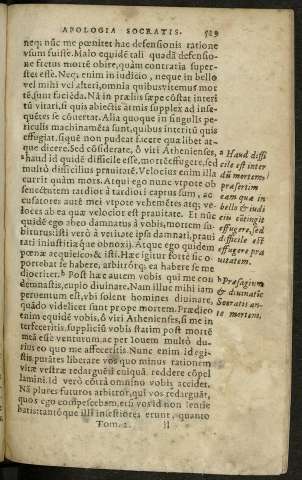 APOLOGIA SOCRATIS. 529
neq; nūc me pœnitet hac defensionis ratione
vsum fuisse. Malo equidē tali quadā defensio-
ne fretus mortē obire, quàm contraria super-
stes esse. Neq; enim in iudicio, neque in bello
vel mihi vel alteri, omnia quibusvitemus mor
tē, sunt faciēda. Nā in prælijs sæpe cōstat interi
tū vitari, si quis abiectis armis supplex ad inse-
quētes se cōuertat. Alia quoque in singulis pe-
riculis machinamēta sunt, quibus interitū quis
effugiat, siquē non pudeat facere quælibet at-
que dicere. Sed cōsiderate, ô viri Athenienses,
haud id quidē difficile esse, mortē effugere, sed
multò difficilius prauitatē. Velocius enim illa
currit quàm mors. Atqui ego nunc vtpote ob
senectutem tardior à tardiori captus sum, ac-
cusatores autē mei vtpote vehemētes atq; ve-
loces ab ea quæ velocior est prauitate. Et nūc
quidē ego abeo damnatus à vobis, mortem su-
biturus: isti verò à veritate ipsi damnati, praui
tati iniustitiæque obnoxij. Atque ego quidem
pœnæ acquiesco, & isti. Hæc igitur forte sic o-
portebat se habere, arbitrórq; ea habere se me
diocriter. b Post hæc autem vobis qui me con
demnastis, cupio diuinare. Nam illuc mihi iam
peruentum est, vbi solent homines diuinare,
quādo videlicet sunt prope mortem. Prædico
enim quidē vobis, ô viri Athenienses, si me in
terfeceritis, suppliciū vobis statim post mortē
meā esse venturum, ac per Iouem multò du-
rius eo quo me affeceritis. Nunc enim id egi-
stis, putātes liberare vos quo minus rationem
vitæ vestræ redarguēti cuiquā reddere cōpel
lamini. Id verò cōtrà omnino vobis accidet.
Nā plures futuros arbitror, qui vos redarguāt,
quos ego compescebam, etsi vos id non sentie
batis: tantóque illi infestiores erunt, quanto
Tom. 2. ll
a Haud diffi
cile est inter
dū mortem,
præsertim
eam quæ in
bello & iudi
cio cōtingit
effugere, sed
difficile est
effugere pra
uitatem.
b Præsagium
& diuinatio
Socratis an-
te mortem.